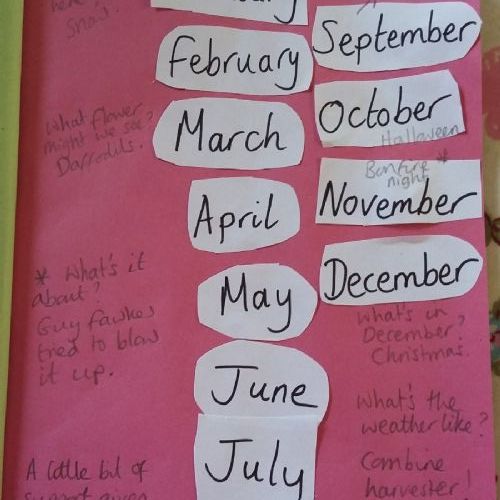 here?
Snow.
February
September
What flower
might we see?
Daffodils.
March
October
Halloween
Bonfire *
night
April
November
* What's it
about?
Guy Fawkes
tried to blow
it up.
May
December
What's in
December?
Christmas.
June
What's the
weather like?
July
Combine
harvester!
A little bit of
support given